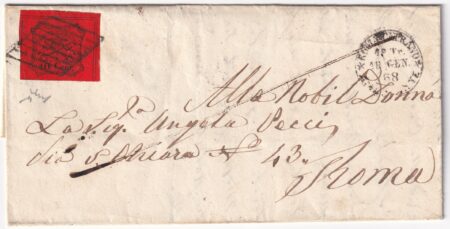 18 GEN.
68
Alla Nobil Donna
La Sig.ª Angola Pecci
Via S. Chiara Nº 43
Roma